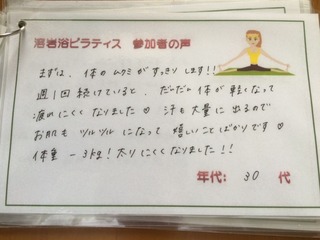 溶岩浴ピラティス 参加者の声
まずは、体のムクミがすっきりします!!
週1回続けていると、だんだん体が軽くなって
疲れにくくなりました♡ 汗も大量に出るので
お肌もツルツルになって嬉しいことばかりです♡
体重 -3kg! 太りにくくなりました!!
年代: 30 代